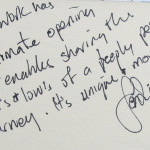 work has
imate opening
enables sharing the
s + lows of a deeply pe
rney. It's unique & mo